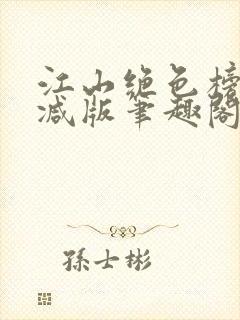 江山绝色榜
减版笔趣阁
孫士彬